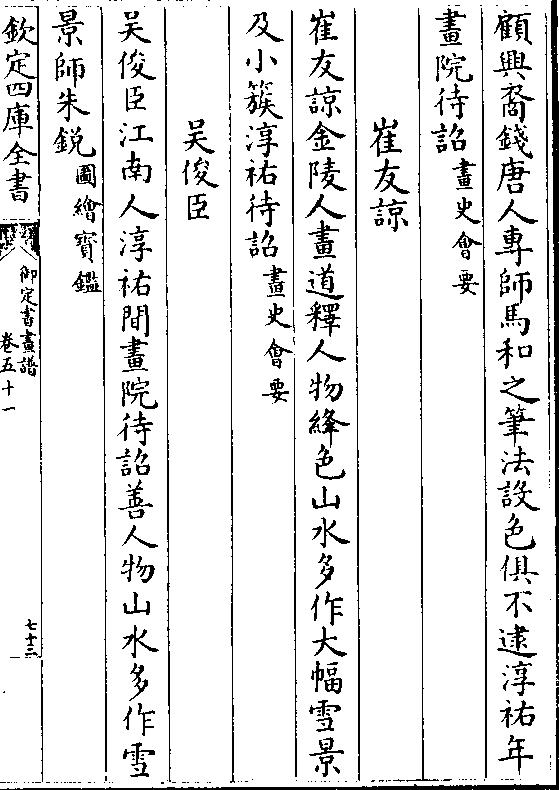 顧興裔錢唐人專師馬和之筆法設色俱不逮淳祐年
畫院待詔畫史會要
崔友諒
崔友諒金陵人畫道釋人物絳色山水多作大幅雪景
及小簇淳祐待詔畫史會要
吴俊臣
吴俊臣江南人淳祐間畫院待詔善人物山水多作雪
景師朱鋭圖繪寳鑑
欽定四庫全書
御定書畫譜
卷五十一
七十三